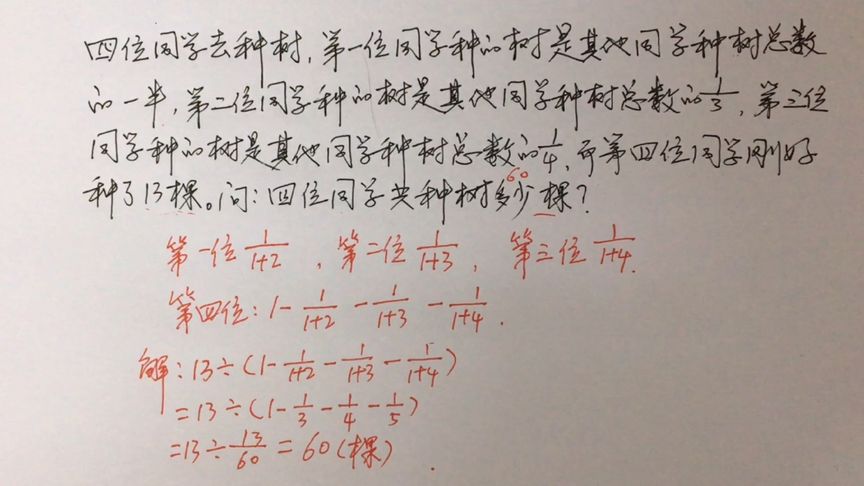 四位同学去种树,第一位同学种的树是其他同学种树总数
的一半,第二位同学种的树是其他同学种树总数的1/3,第三位
同学种的树是其他同学种树总数的1/4,而第四位同学刚好
种了13棵。问:四位同学共种树多少棵?
60
第一位 1/(1+2) ,第二位 1/(1+3) ,第三位 1/(1+4) .
第四位:1 - 1/(1+2) - 1/(1+3) - 1/(1+4) .
解:13÷(1 - 1/(1+2) - 1/(1+3) - 1/(1+4))
=13÷(1 - 1/3 - 1/4 - 1/5)
=13÷13/60 = 60(棵) .